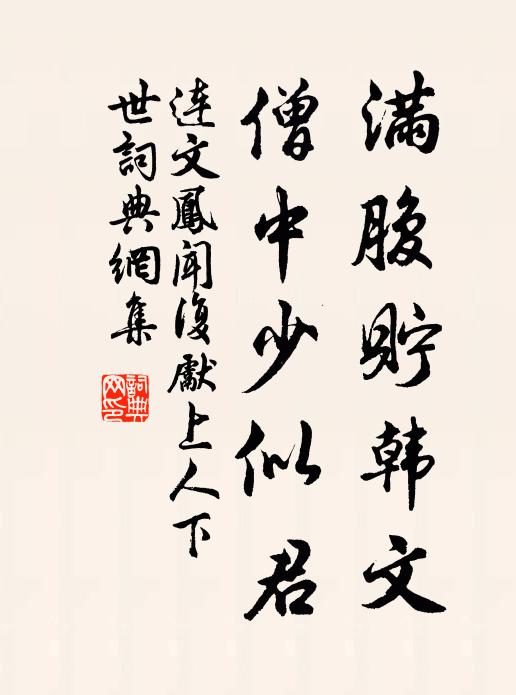 满腹貯韩文
僧中少似君
連文鳳聞復獻上人下
世詞典網集
詞典
网印